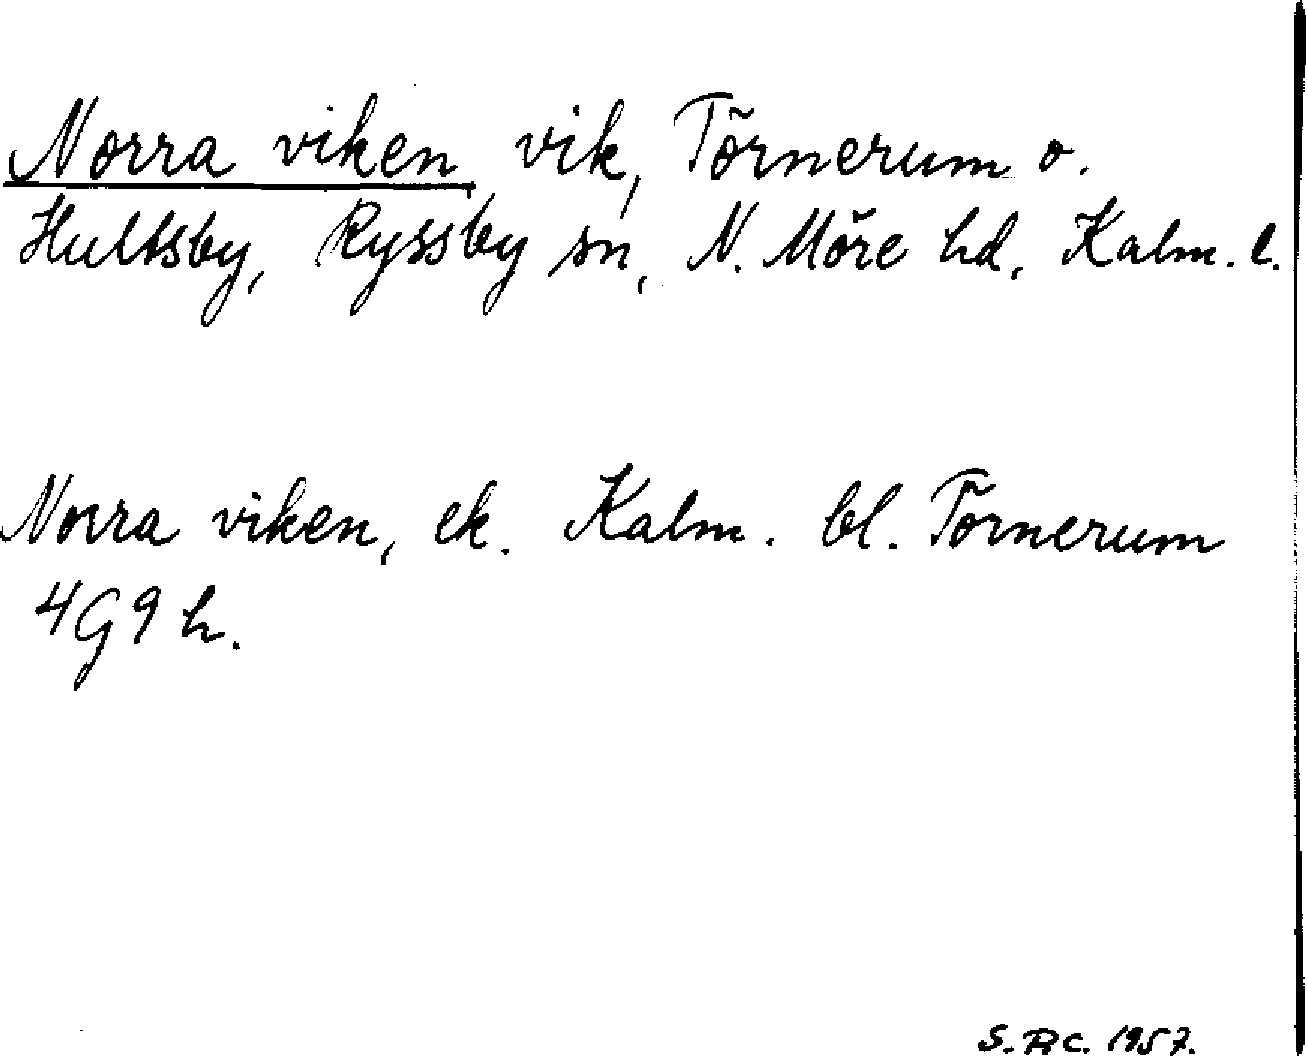 Norra viken, vik, Törnerum o.
Hultsby, Ryssby sn, N. Möre hd, Kalm. l.
Norra viken, ek. Kalm. bl. Törnerum
4G9h.
S. Rc. 1957.